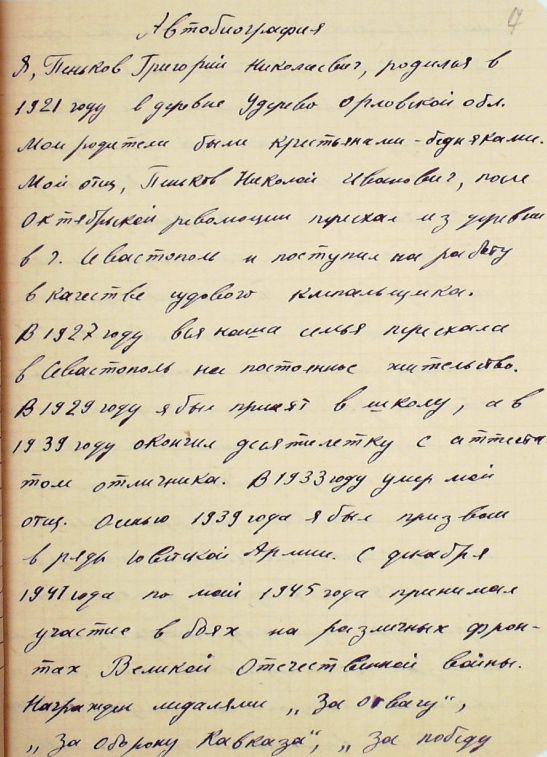 4
Автобиография
Я, Пеньков Григорий Николаевич, родился в
1921 году в деревне Удерево Орловской обл.
Мои родители были крестьянами-бедняками.
Мой отец, Пеньков Николай Иванович, после
Октябрьской революции переехал из деревни
в г. Севастополь и поступил на работу
в качестве судового клепальщика.
В 1927 году вся наша семья переехала
в Севастополь на постоянное жительство.
В 1929 году я был принят в школу, а в
1939 году окончил десятилетку с аттеста-
том отличника. В 1933 году умер мой
отец. Осенью 1939 года я был призван
в ряды Советской Армии. С декабря
1941 года по май 1945 года принимал
участие в боях на различных фрон-
тах Великой Отечественной войны.
Награжден медалями „За отвагу“,
„За оборону Кавказа“, „За победу